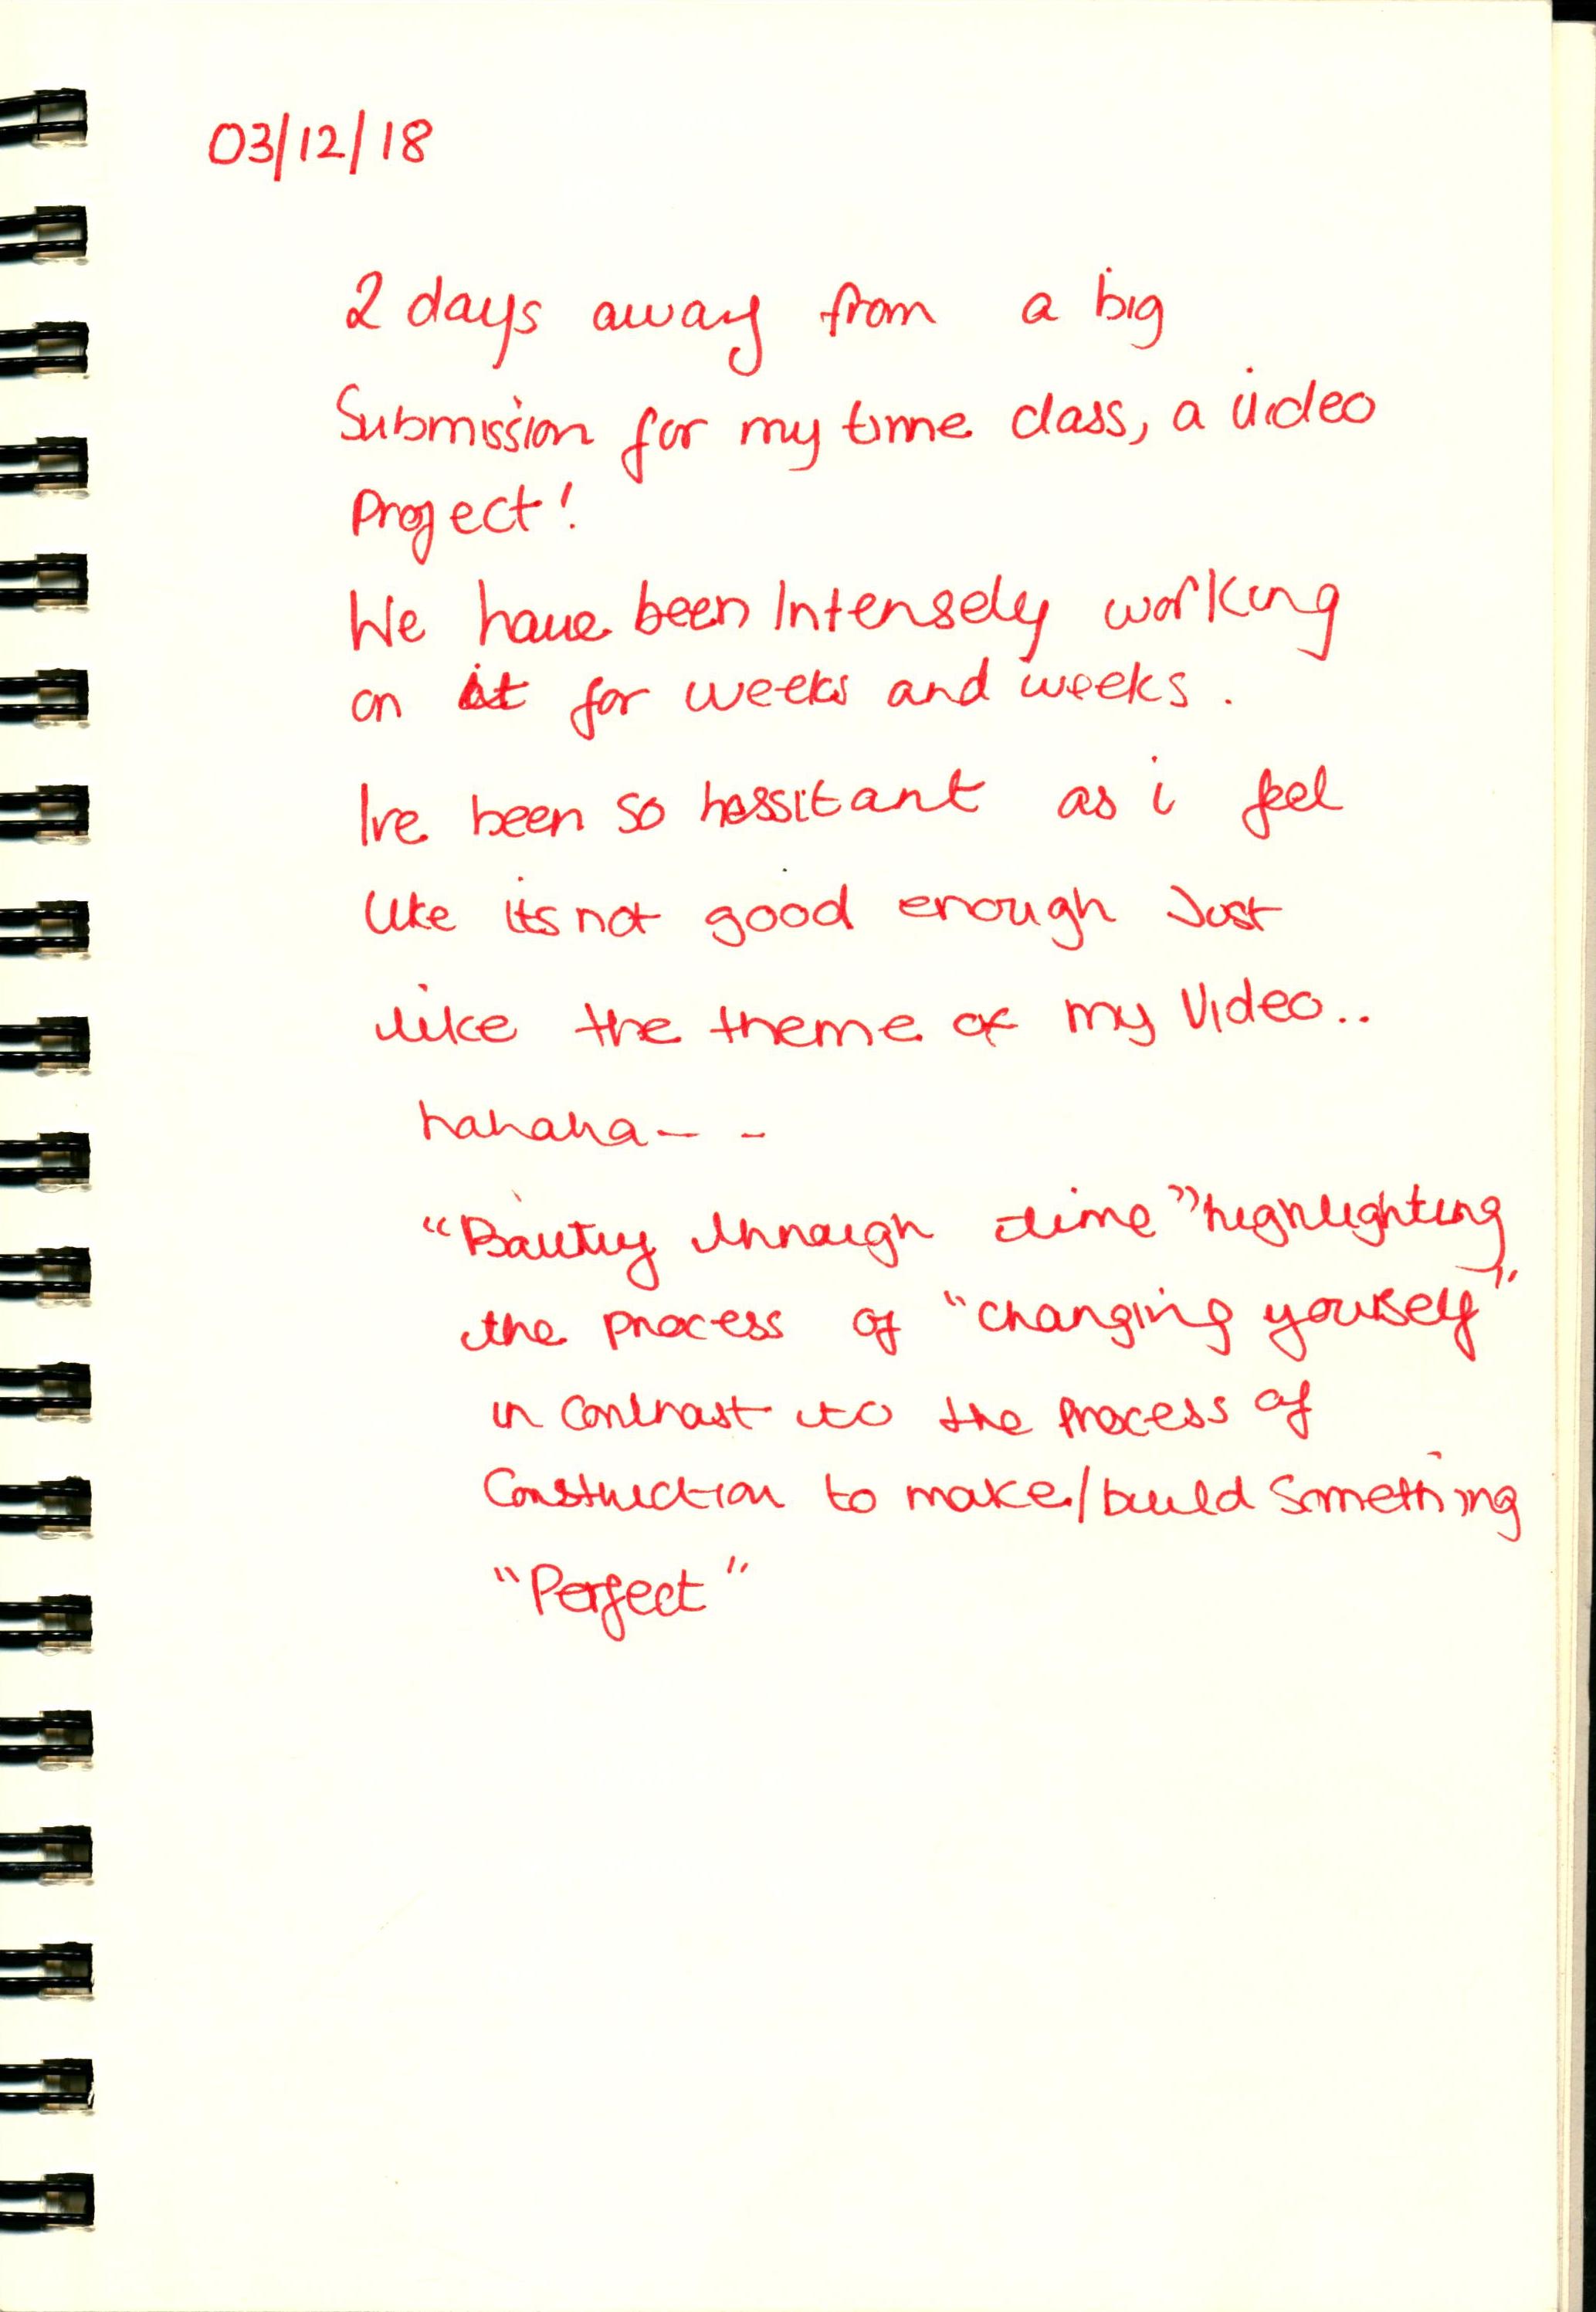 03/12/18
2 days away from a big
Submission for my time class, a video
Project!
We have been Intensely working
on it for weeks and weeks.
Ive been so hessitant as i feel
like its not good enough Just
like the theme of my Video..
hahaha - -
"Bautiy through time" highlighting
the process of "changing yourself"
in contrast to the process of
Construction to make/build Something
"Perfect"